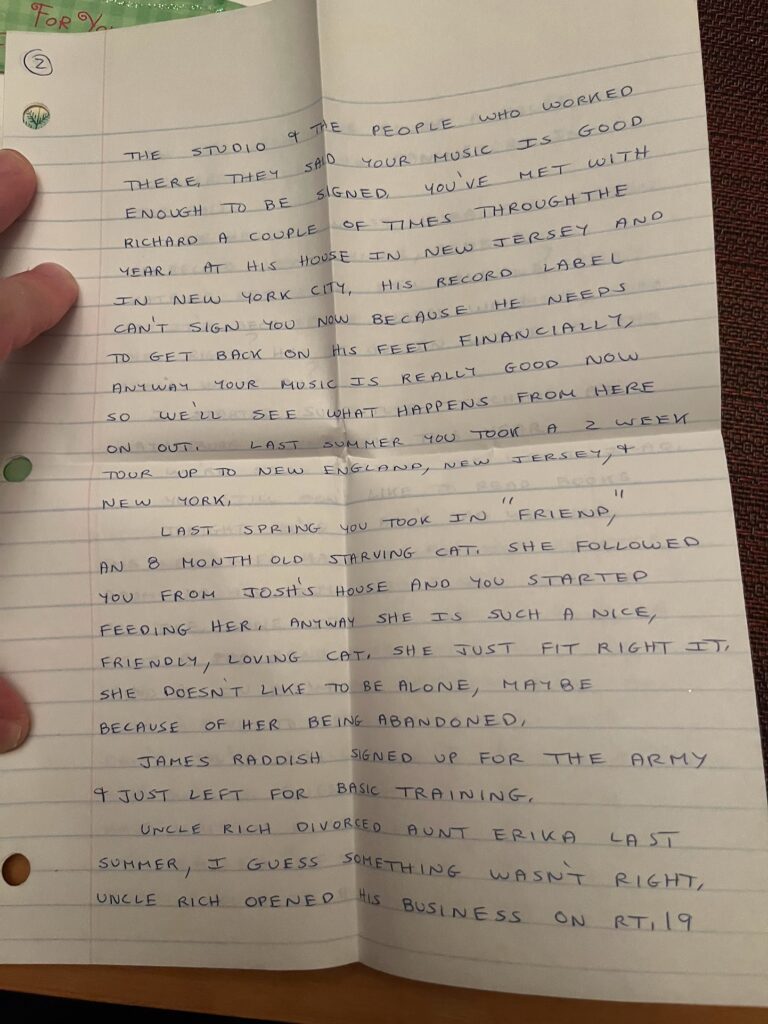 FOR YO
2
THE STUDIO & THE PEOPLE WHO WORKED
THERE, THEY SAID YOUR MUSIC IS GOOD
ENOUGH TO BE SIGNED. YOU'VE MET WITH
RICHARD A COUPLE OF TIMES THROUGH THE
YEAR. AT HIS HOUSE IN NEW JERSEY AND
IN NEW YORK CITY, HIS RECORD LABEL
CAN'T SIGN YOU NOW BECAUSE HE NEEDS
TO GET BACK ON HIS FEET FINANCIALLY,
ANYWAY YOUR MUSIC IS REALLY GOOD NOW
SO WE'LL SEE WHAT HAPPENS FROM HERE
ON OUT. LAST SUMMER YOU TOOK A 2 WEEK
TOUR UP TO NEW ENGLAND, NEW JERSEY, &
NEW YORK.
LAST SPRING YOU TOOK IN "FRIEND,"
AN 8 MONTH OLD STARVING CAT. SHE FOLLOWED
YOU FROM JOSH'S HOUSE AND YOU STARTED
FEEDING HER. ANYWAY SHE IS SUCH A NICE,
FRIENDLY, LOVING CAT. SHE JUST FIT RIGHT IT.
SHE DOESN'T LIKE TO BE ALONE, MAYBE
BECAUSE OF HER BEING ABANDONED.
JAMES RADDISH SIGNED UP FOR THE ARMY
& JUST LEFT FOR BASIC TRAINING.
UNCLE RICH DIVORCED AUNT ERIKA LAST
SUMMER, I GUESS SOMETHING WASN'T RIGHT,
UNCLE RICH OPENED HIS BUSINESS ON RT. 19